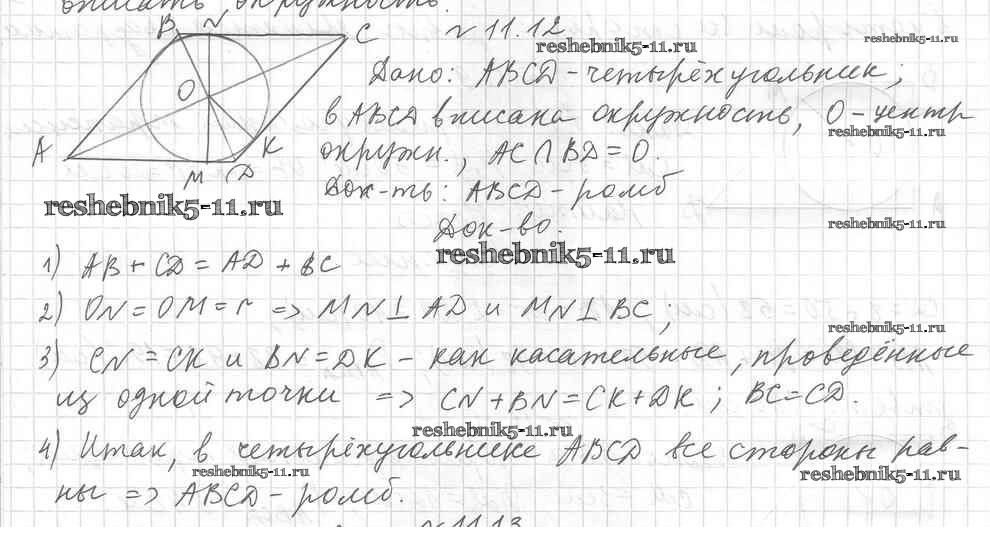 вписать окружность.
№ 11.12
reshebnik5-11.ru
reshebnik5-11.ru
B N C
O
A K
M D
Дано: ABCD - четырёхугольник;
в ABCD вписана окружность, O - центр
reshebnik5-11.ru
окружн., AC ∩ BD = O.
Док-ть: ABCD - ромб
reshebnik5-11.ru
reshebnik5-11.ru
Док-во.
reshebnik5-11.ru
1) AB + CD = AD + BC
2) ON = OM = r => MN ⊥ AD и MN ⊥ BC;
reshebnik5-11.ru
3) CN = CK и BN = DK - как касательные, проведённые
из одной точки => CN + BN = CK + DK; BC = CD.
reshebnik5-11.ru
4) Итак, в четырёхугольнике ABCD все стороны рав-
reshebnik5-11.ru
reshebnik5-11.ru
ны => ABCD - ромб.
№ 11.13